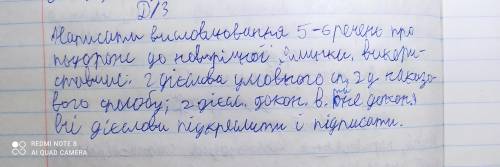 Д/З
Написати висловлювання 5-6 речень про
подорож до новорічної ялинки, викори-
ставши. 2 дієслова умовного сп, 2 д наказо-
вого способу; 2 дієсл. докон. в. і не докон
всі дієслова підкреслити і підписати.
REDMI NOTE 8
AI QUAD CAMERA